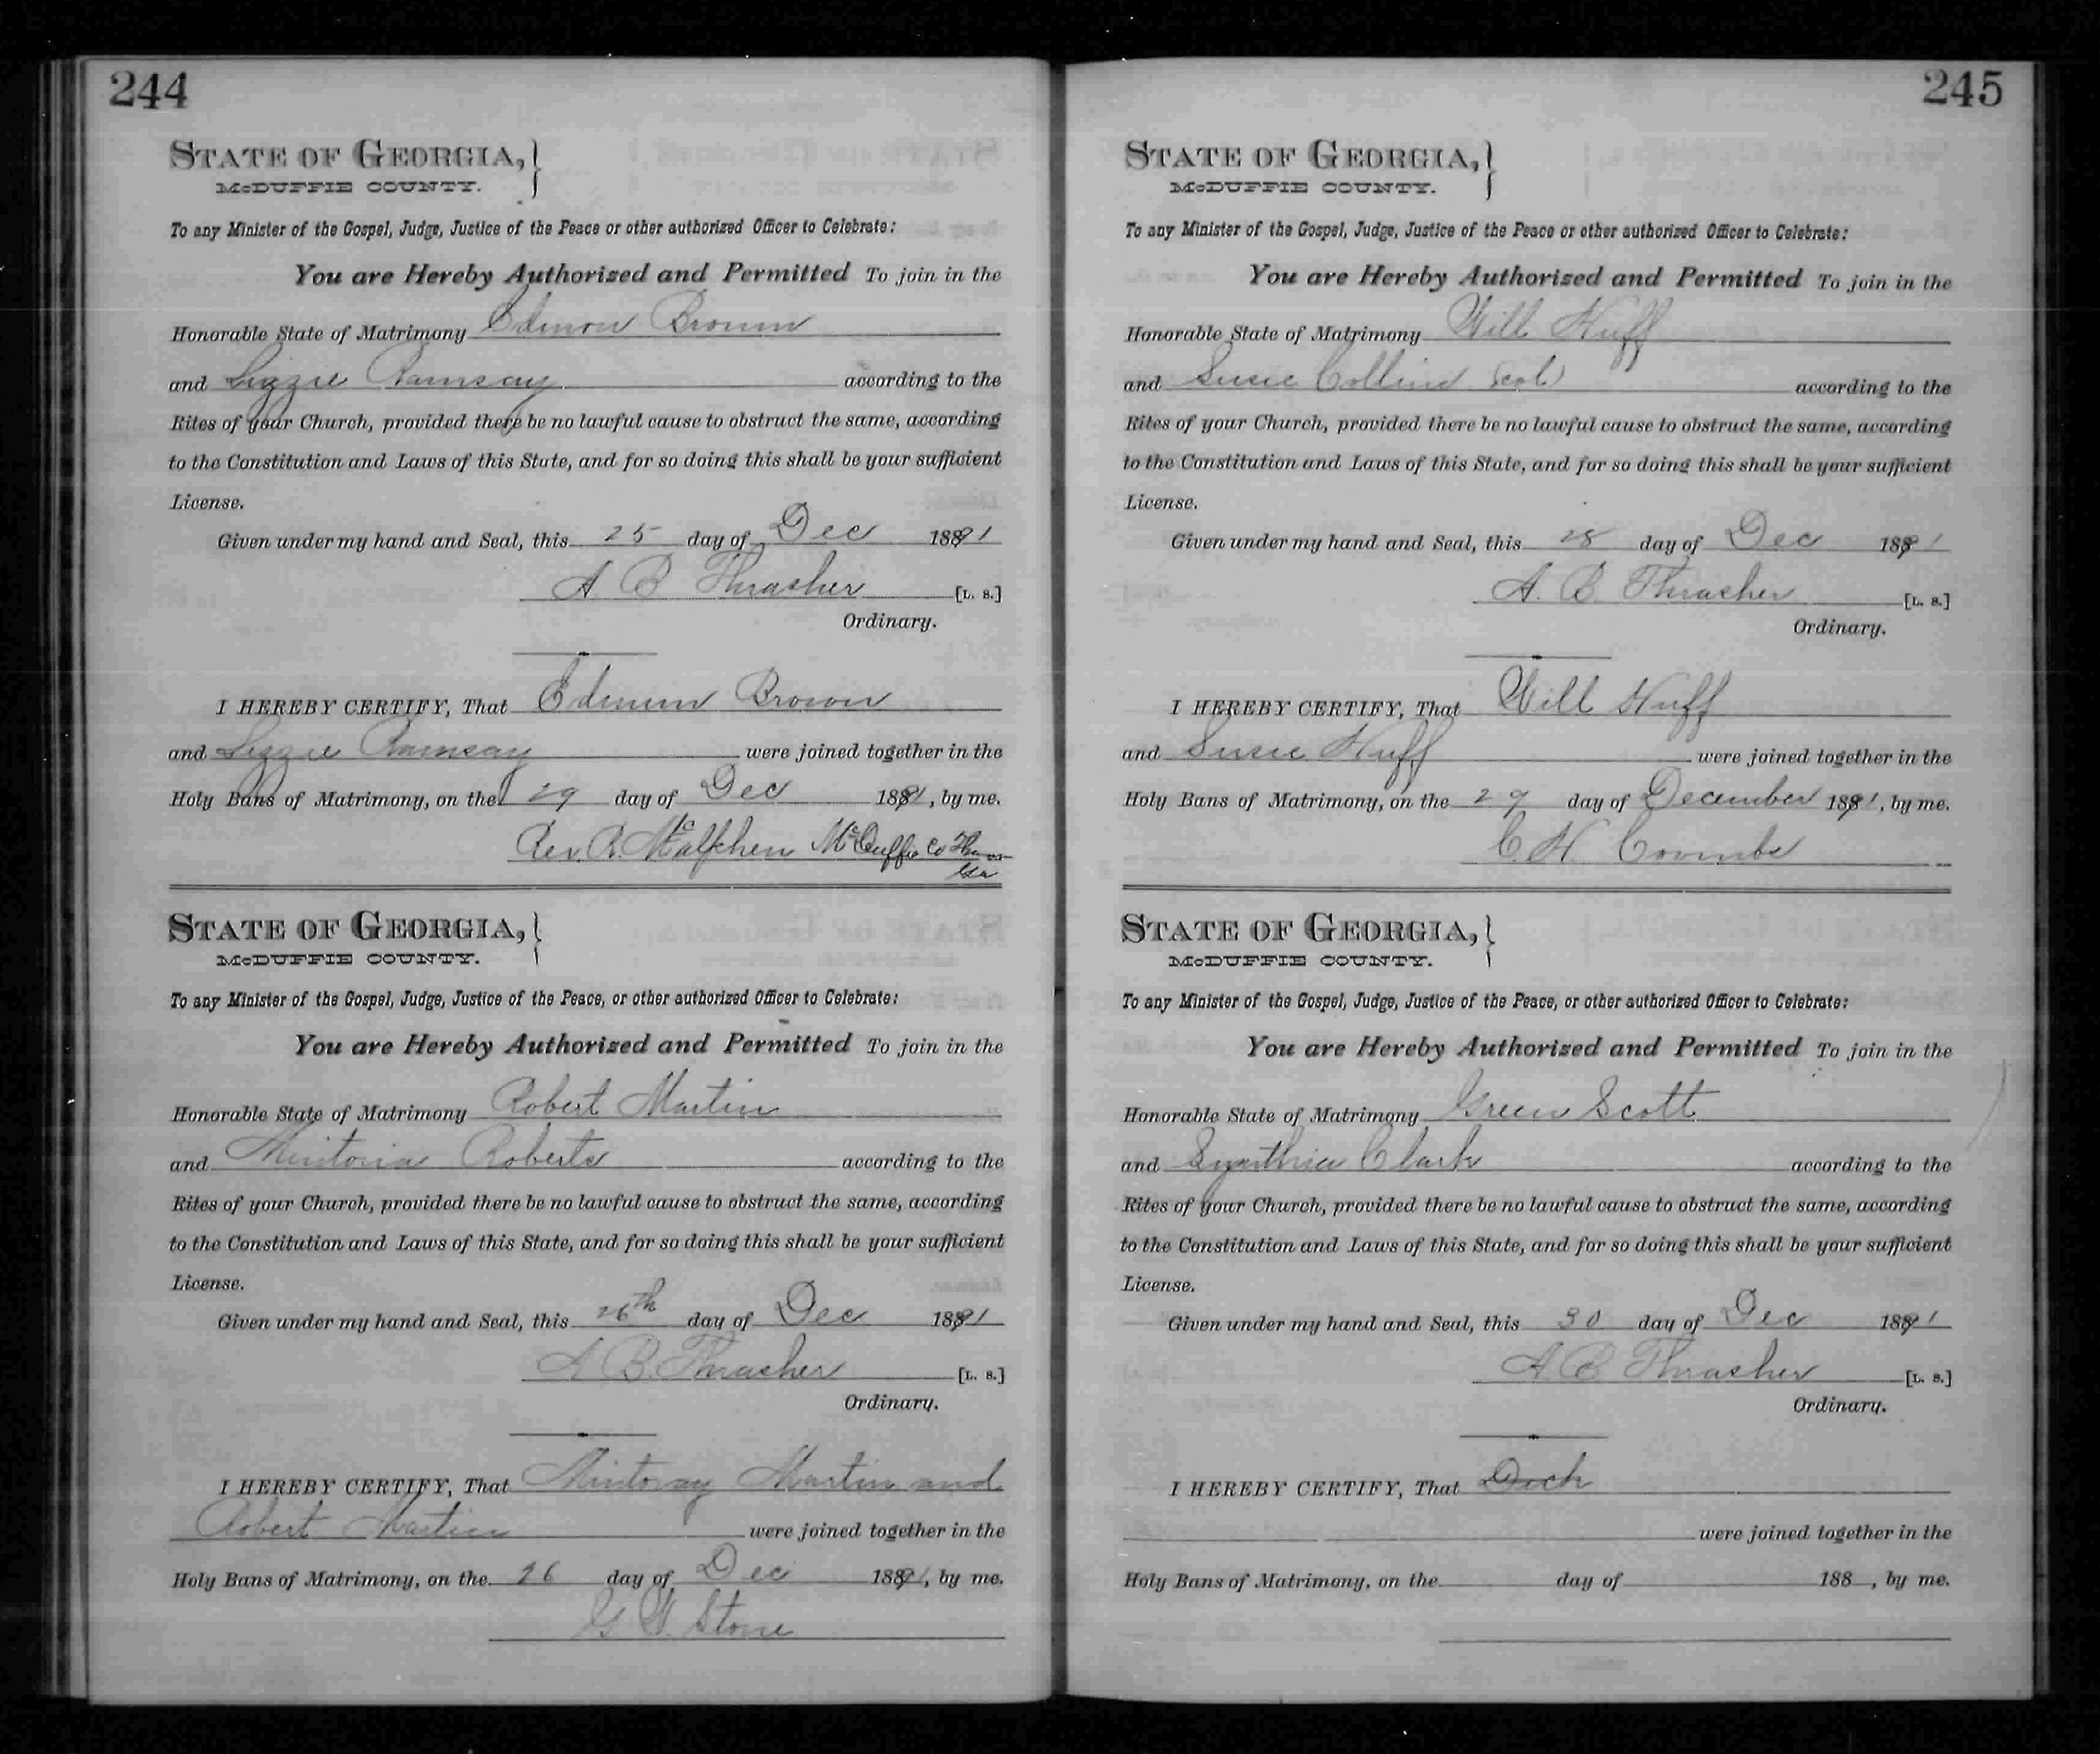 244
STATE OF GEORGIA,
McDUFFIE COUNTY.
To any Minister of the Gospel, Judge, Justice of the Peace or other authorized Officer to Celebrate:
You are Hereby Authorized and Permitted To join in the
Honorable State of Matrimony Edmon Brown
and Lizzie Ramsay according to the
Rites of your Church, provided there be no lawful cause to obstruct the same, according
to the Constitution and Laws of this State, and for so doing this shall be your sufficient
License.
Given under my hand and Seal, this 25 day of Dec 1891
A B Thrasher [L. S.]
Ordinary.
I HEREBY CERTIFY, That Edmun Brown
and Lizzie Ramsay were joined together in the
Holy Bans of Matrimony, on the 29 day of Dec 1891, by me.
Rev. R. McDuffie Co
Ga
STATE OF GEORGIA,
McDUFFIE COUNTY.
To any Minister of the Gospel, Judge, Justice of the Peace, or other authorized Officer to Celebrate:
You are Hereby Authorized and Permitted To join in the
Honorable State of Matrimony Robert Martin
and Mintoria Roberts according to the
Rites of your Church, provided there be no lawful cause to obstruct the same, according
to the Constitution and Laws of this State, and for so doing this shall be your sufficient
License.
Given under my hand and Seal, this 26th day of Dec 1891
A B. Thrasher [L. S.]
Ordinary.
I HEREBY CERTIFY, That Mintoray Martin and
Robert Martin were joined together in the
Holy Bans of Matrimony, on the 26 day of Dec 1891, by me.
G W. Stone
245
STATE OF GEORGIA,
McDUFFIE COUNTY.
To any Minister of the Gospel, Judge, Justice of the Peace or other authorized Officer to Celebrate:
You are Hereby Authorized and Permitted To join in the
Honorable State of Matrimony Will Huff
and Susie Collins (col) according to the
Rites of your Church, provided there be no lawful cause to obstruct the same, according
to the Constitution and Laws of this State, and for so doing this shall be your sufficient
License.
Given under my hand and Seal, this 28 day of Dec 1891
A. B. Thrasher [L. S.]
Ordinary.
I HEREBY CERTIFY, That Will Huff
and Susie Huff were joined together in the
Holy Bans of Matrimony, on the 29 day of December 1891, by me.
C. H. Coombs
STATE OF GEORGIA,
McDUFFIE COUNTY.
To any Minister of the Gospel, Judge, Justice of the Peace, or other authorized Officer to Celebrate:
You are Hereby Authorized and Permitted To join in the
Honorable State of Matrimony Green Scott
and Synthia Clark according to the
Rites of your Church, provided there be no lawful cause to obstruct the same, according
to the Constitution and Laws of this State, and for so doing this shall be your sufficient
License.
Given under my hand and Seal, this 30 day of Dec 1891
A B Thrasher [L. S.]
Ordinary.
I HEREBY CERTIFY, That
were joined together in the
Holy Bans of Matrimony, on the day of 188 , by me.